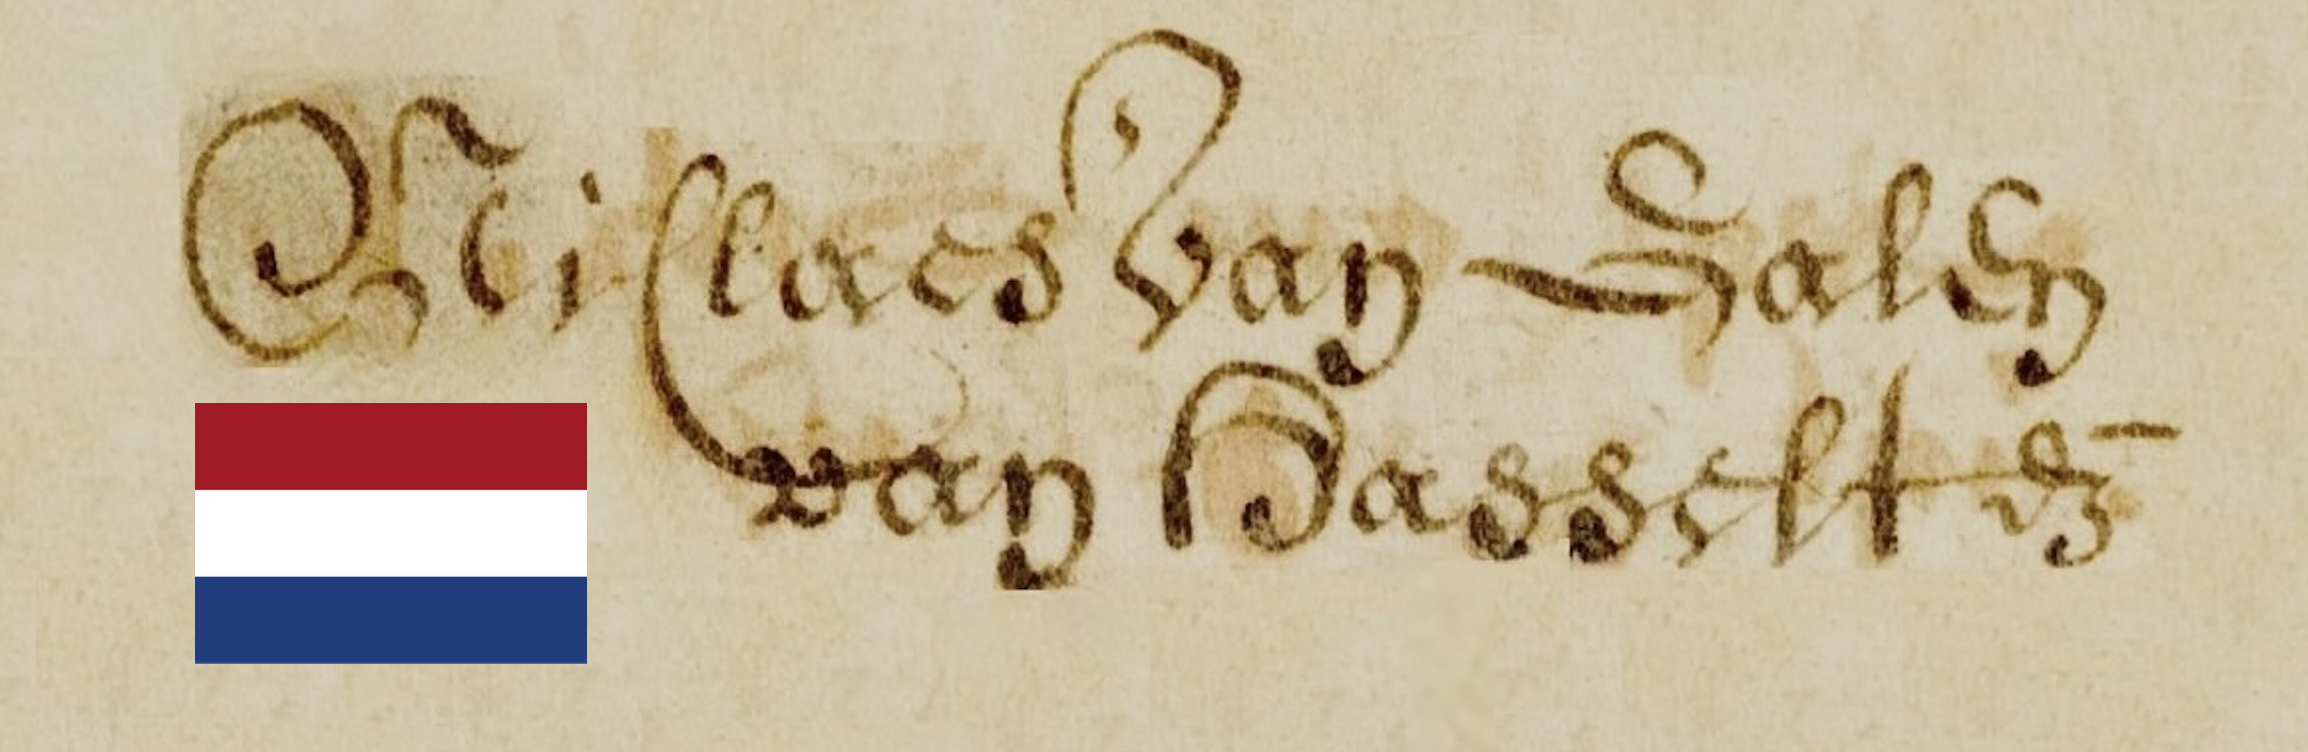 Niclaes Van Dalen
van Hasselt